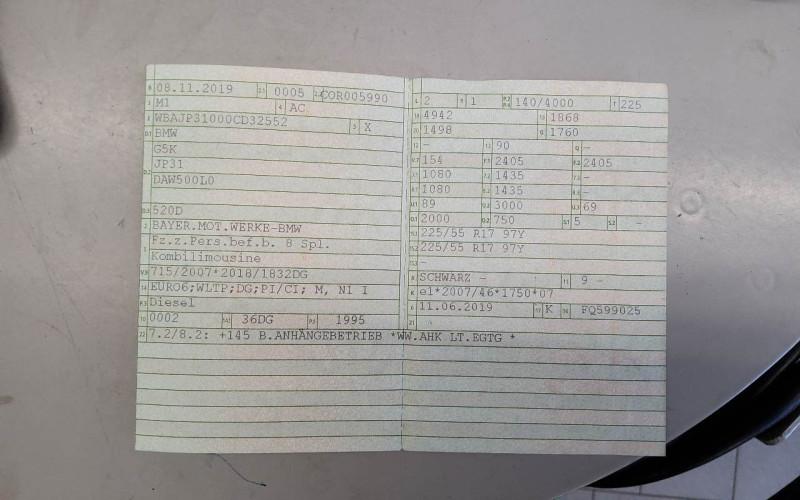 B 08.11.2019 2.1 0005 2.2 COR005990
J M1 4 AC
E WBAJP31000CD32552 3 X
D.1 BMW
D.2 G5K
JP31
DAW500L0
D.3 520D
2 BAYER.MOT.WERKE-BMW
5 Fz.z.Pers.bef.b. 8 Spl.
Kombilimousine
V.9 715/2007*2018/1832DG
14 EURO6;WLTP;DG;PI/CI; M, N1 I
P.3 Diesel
10 0002 14.1 36DG P.1 1995
22 7.2/8.2: +145 B.ANHÄNGEBETRIEB *WW.AHK LT.EGTG *
L 2 9 1 P.2 P.4 140/4000 T 225
18 4942 19 1868
20 1498 G 1760
12 - 13 90 Q -
V.7 154 F.1 2405 F.2 2405
7.1 1080 7.2 1435 7.3 -
8.1 1080 8.2 1435 8.3 -
U.1 89 U.2 3000 U.3 69
O.1 2000 O.2 750 S.1 5 S.2 -
15.1 225/55 R17 97Y
15.2 225/55 R17 97Y
15.3 -
R SCHWARZ - 11 9 -
K e1*2007/46*1750*07
6 11.06.2019 17 K 16 FQ599025
21 -